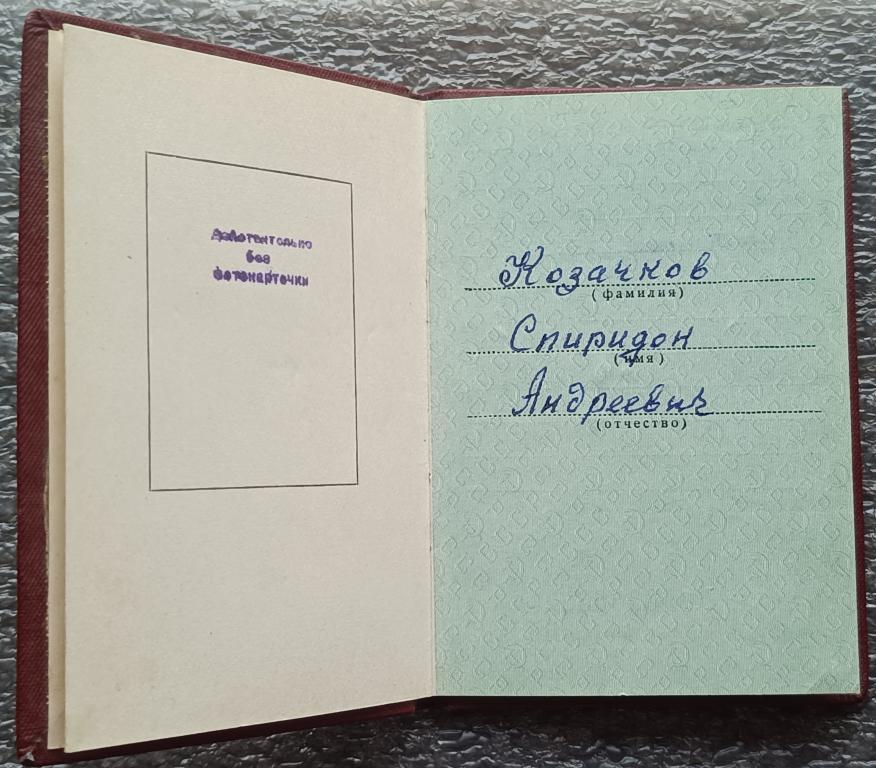 Действительно
без
фотокарточки
Козачков
(фамилия)
Спиридон
(имя)
Андреевич
(отчество)